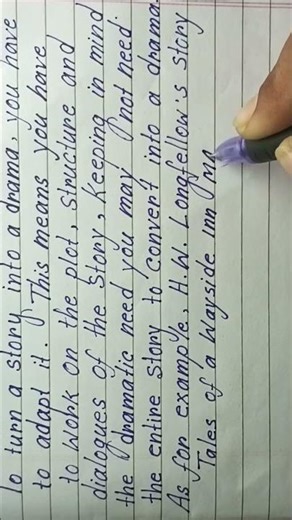 To turn a story into a drama you have
to adapt it. This means you have
to work on the plot, Structure and
dialogues of the Story, Keeping in mind
the dramatic need you may not need
the entire Story to convert into a drama.
As for example, H.W. Longfellow's story
Tales of a Wayside Inn